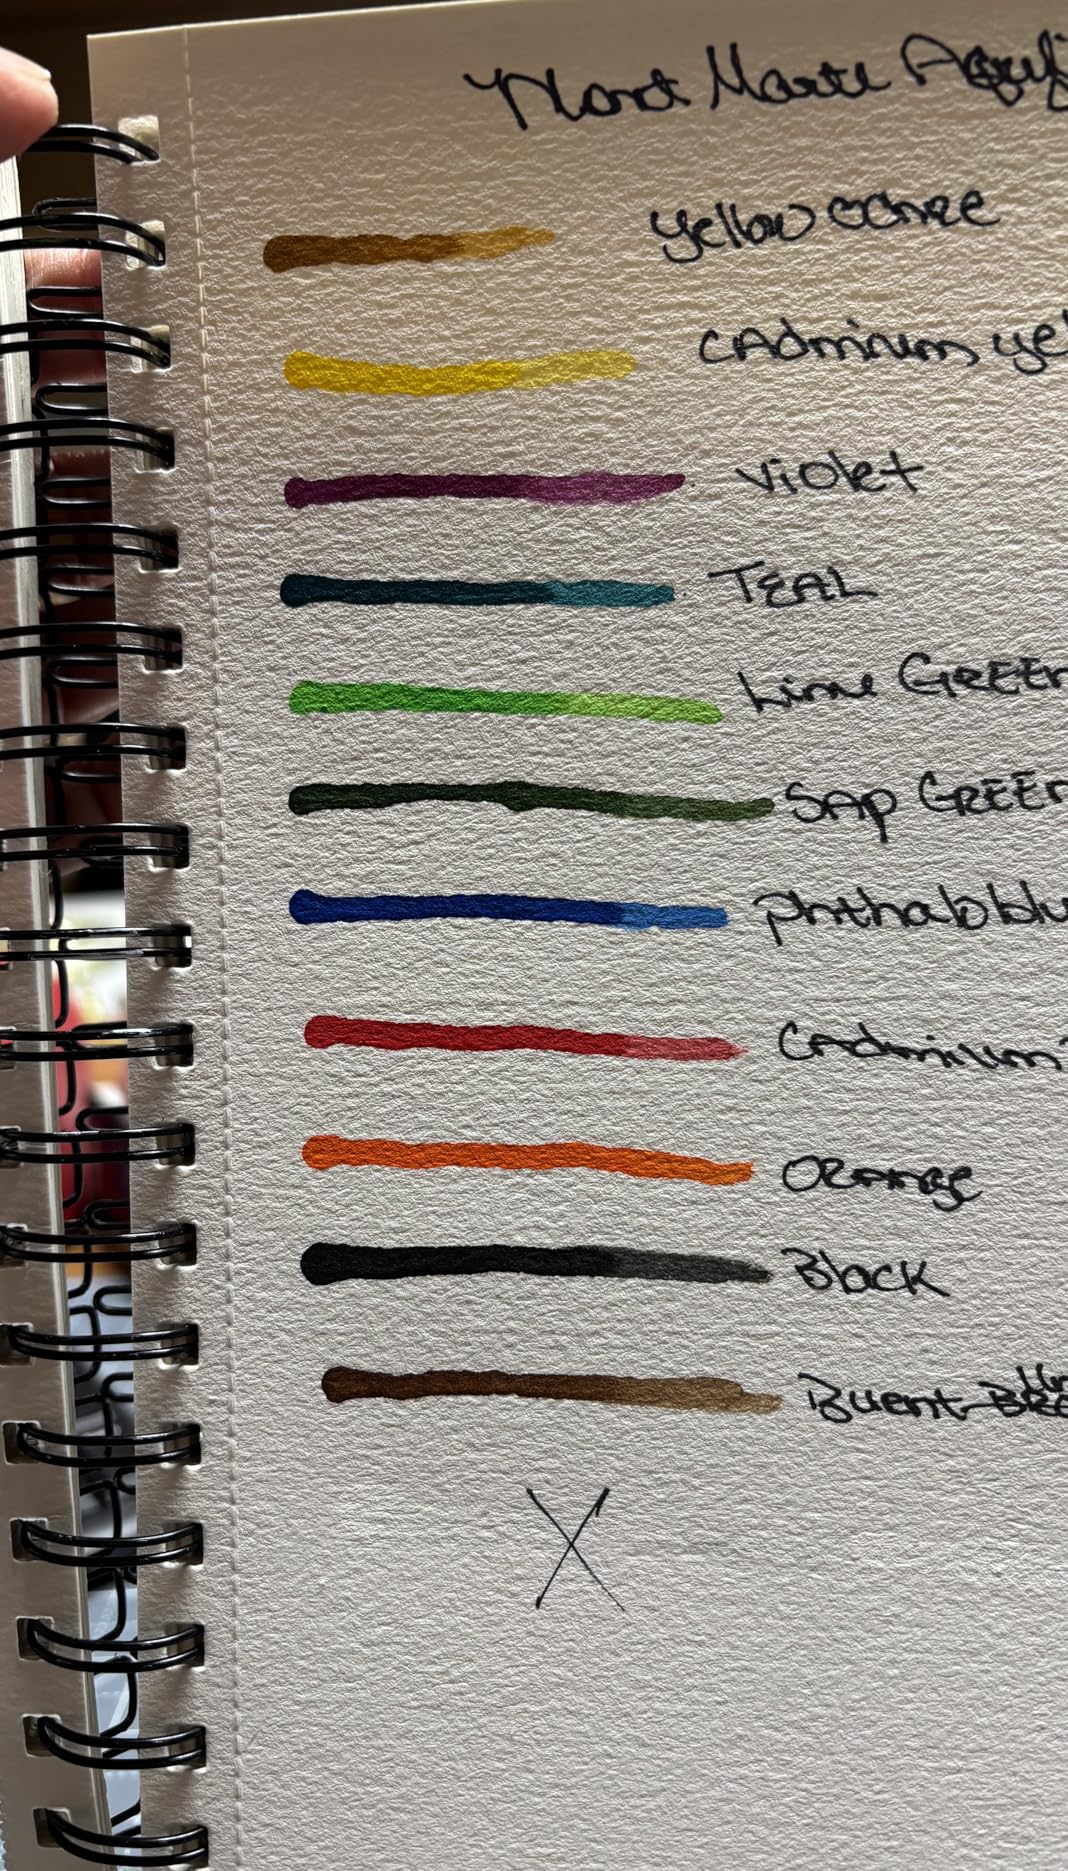 Mont Marte Acryl
Yellow OCHRE
CADmium yel
Violet
TEAL
Lime GREEN
SAp GREEN
phthalo blu
CADmium
ORANGE
Black
Burnt
X